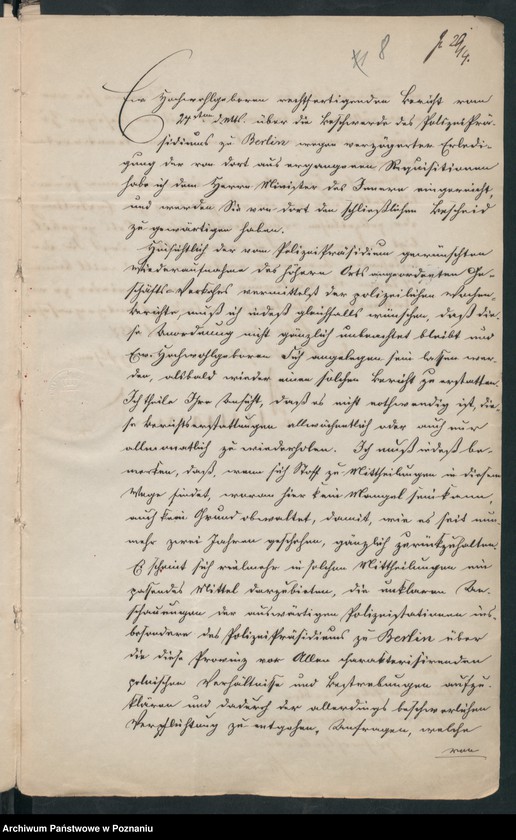 8
29/4.
Ew Hochwohlgeboren rechtfertigenden Bericht vom
24ten d. Mts. über die Beschwerde des Polizei Prä-
sidiums zu Berlin wegen verzögerter Erledi-
gung der von dort aus ergangenen Requisitionen
habe ich dem Herrn Minister des Innern eingereicht,
und werden Sie von dort den schließlichen Bescheid
zu gewärtigen haben.
Hinsichtlich der vom Polizei Präsidium gewünschten
Wiederaufnahme des höhern Orts angeordneten Ge-
schäfts-Verkehrs vermittelst der polizeilichen Wochen-
berichte, muß ich indeß gleichfalls wünschen, daß die-
se Anordnung nicht gänzlich unbeachtet bleibt und
Ew. Hochwohlgeboren Sich angelegen sein lassen wer-
den, alsbald wieder einen solchen Bericht zu erstatten.
Ich theile Ihre Ansicht, daß es nicht nothwendig ist, die-
se Berichterstattungen allwöchentlich oder auch nur
allmonatlich zu wiederholen. Ich muß indeß be-
merken, daß, wenn sich Stoff zu Mittheilungen in diesem
Wege findet, woran hier kein Mangel sein kann,
auch kein Grund obwaltet, damit, wie es seit nun-
mehr zwei Jahren geschehen, gänzlich zurückzuhalten.
Es scheint sich vielmehr in solchen Mittheilungen ein
passendes Mittel darzubieten, die unklaren An-
schauungen der auswärtigen Polizeistationen ins-
besondere des Polizei Präsidiums zu Berlin über
die diese Provinz vor Allem charakterisirenden
polnischen Verhältnisse und Bestrebungen aufzu-
klären und dadurch der allerdings beschwerlichen
Verpflichtung zu entgehen, Anfragen, welche
von
Archiwum Państwowe w Poznaniu